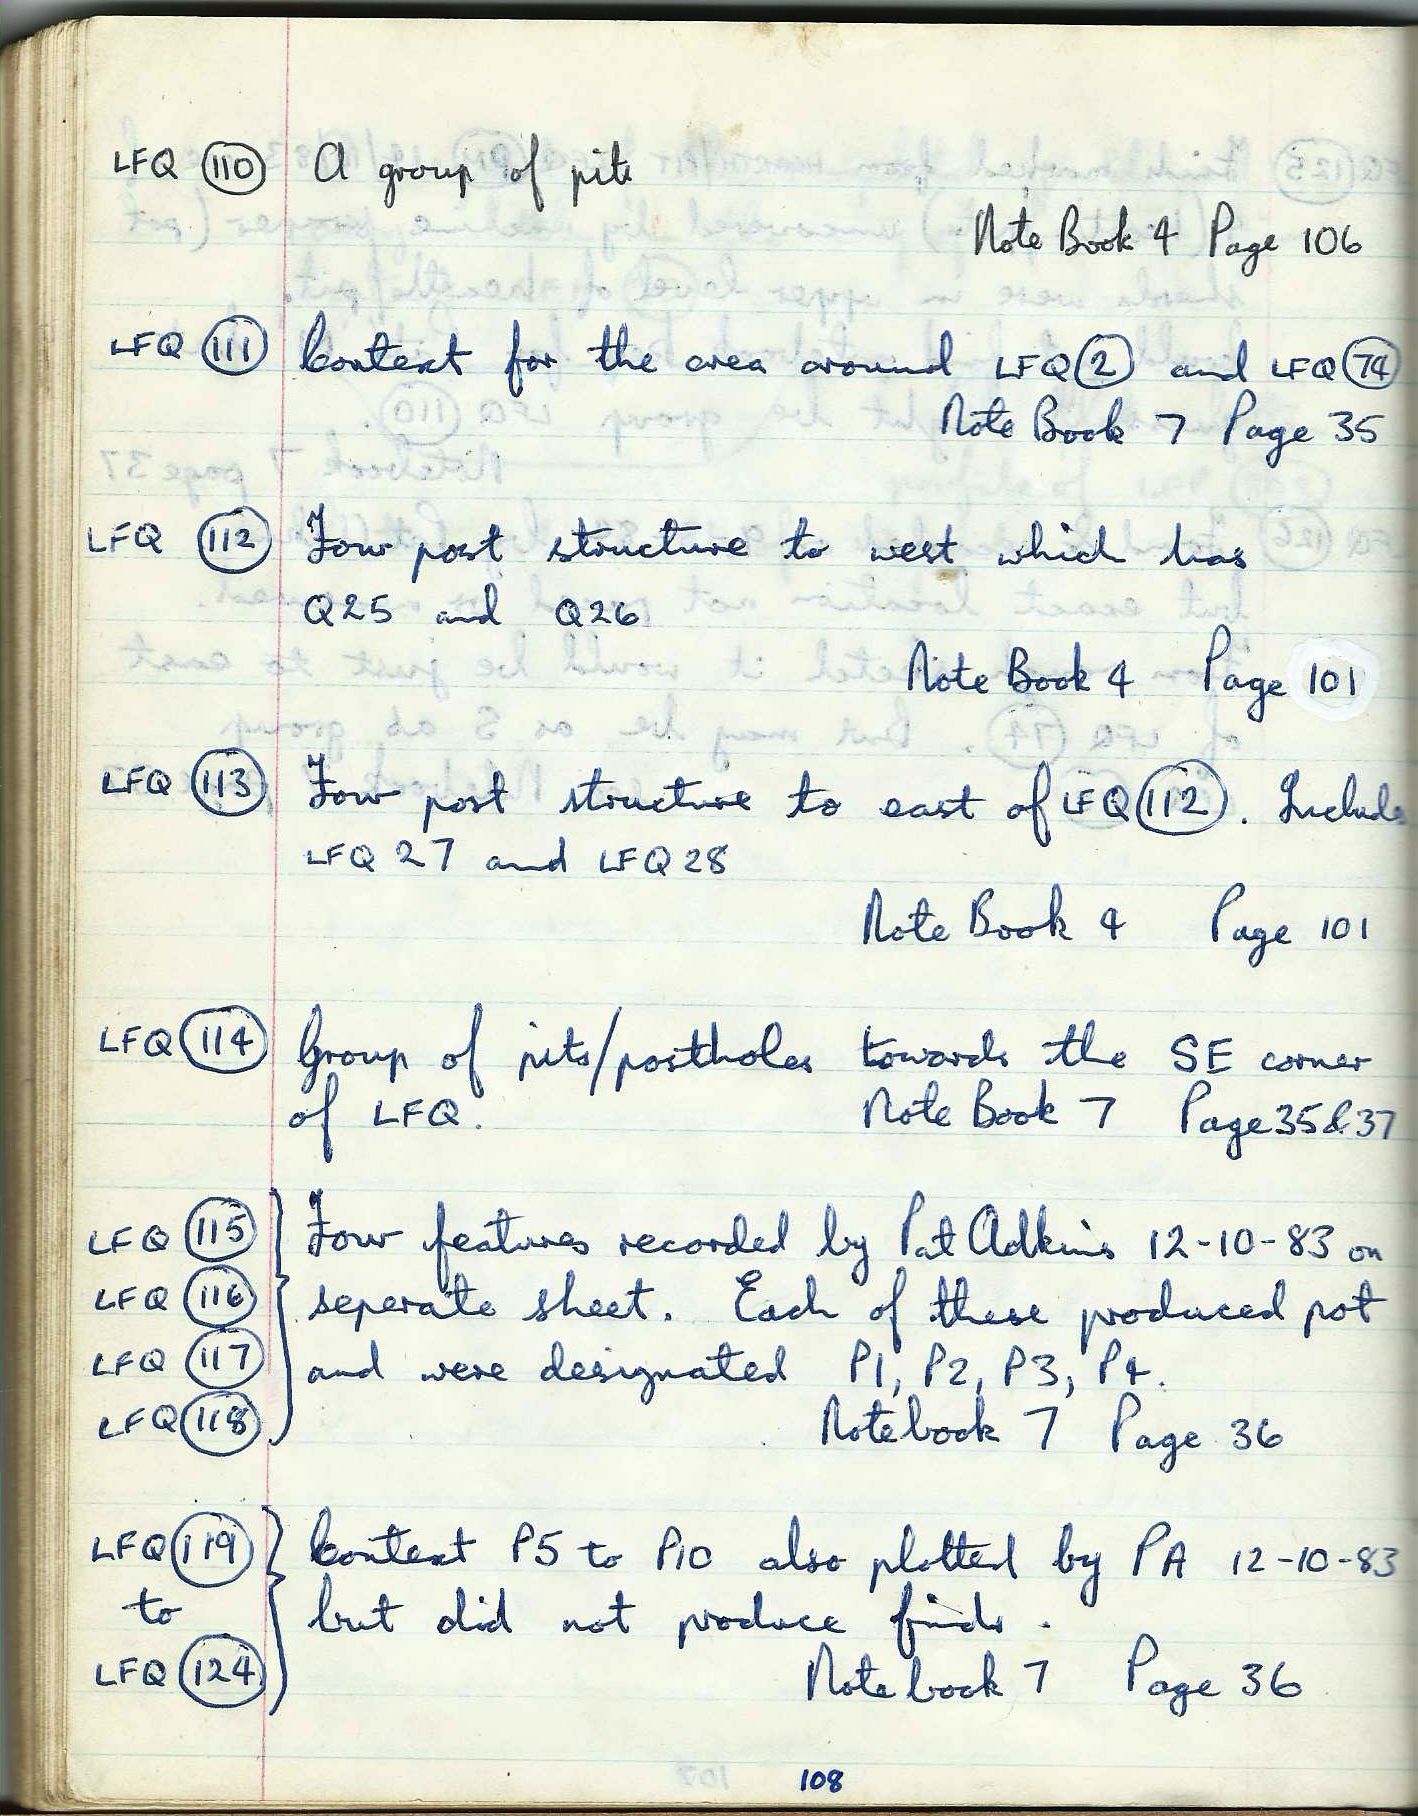 LFQ 110 A group of pits
Note Book 4 Page 106
LFQ 111 Context for the area around LFQ 2 and LFQ 74
Note Book 7 Page 35
LFQ 112 Four post structure to west which has
Q25 and Q26
Note Book 4 Page 101
LFQ 113 Four post structure to east of LFQ 112. Include
LFQ 27 and LFQ 28
Note Book 4 Page 101
LFQ 114 Group of pits/postholes towards the SE corner
of LFQ. Note Book 7 Page 35 & 37
LFQ 115 Four features recorded by Pat Adkins 12-10-83 on
LFQ 116 seperate sheet. Each of these produced pot
LFQ 117 and were designated P1, P2, P3, P4.
LFQ 118 Notebook 7 Page 36
LFQ 119 Context P5 to P10 also plotted by PA 12-10-83
to but did not produce finds.
LFQ 124 Notebook 7 Page 36
108